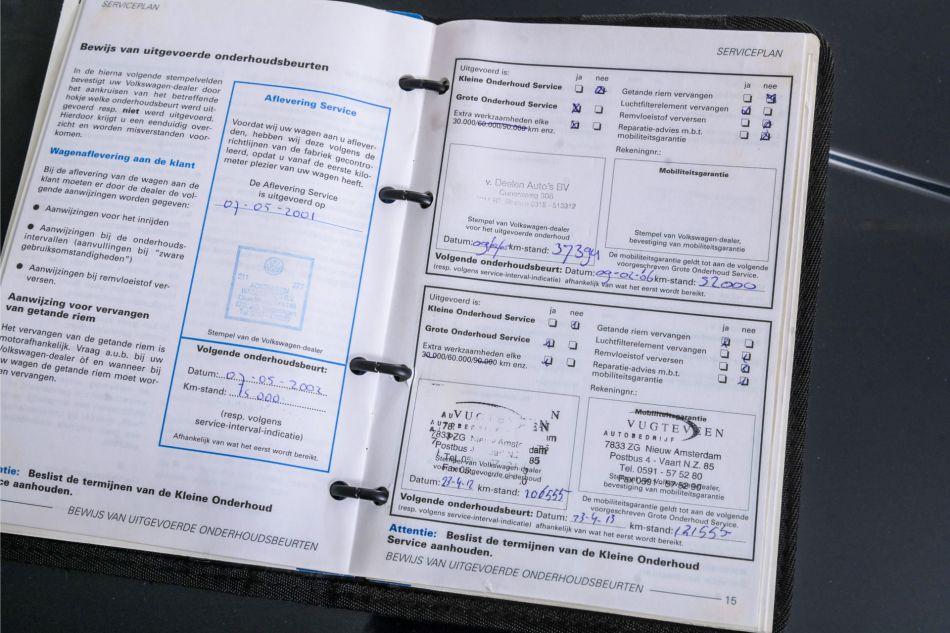 SERVICEPLAN
Bewijs van uitgevoerde onderhoudsbeurten
In de hierna volgende stempelvelden
bevestigt uw Volkswagen-dealer door
het aankruisen van het betreffende
hokje welke onderhoudsbeurt werd uit-
gevoerd resp. niet werd uitgevoerd.
Hierdoor krijgt u een eenduidig over-
zicht en worden misverstanden voor-
komen.
Wagenaflevering aan de klant
Bij de aflevering van de wagen aan de
klant moeten er door de dealer de vol-
gende aanwijzingen worden gegeven:
● Aanwijzingen voor het inrijden
● Aanwijzingen bij de onderhouds-
intervallen (aanvullingen bij "zware
gebruiksomstandigheden")
● Aanwijzingen bij remvloeistof ver-
versen.
Aanwijzing voor vervangen
van getande riem
Het vervangen van de getande riem is
motorafhankelijk. Vraag a.u.b. bij uw
Volkswagen-dealer óf en wanneer bij
uw wagen de getande riem moet wor-
den vervangen.
Aflevering Service
Voordat wij uw wagen aan u aflever-
den, hebben wij deze volgens de
richtlijnen van de fabriek gecontro-
leerd, opdat u vanaf de eerste kilo-
meter plezier van uw wagen heeft.
De Aflevering Service
is uitgevoerd op
07-05-2001
Stempel van de Volkswagen-dealer
Volgende onderhoudsbeurt:
Datum: 07-05-2002
Km-stand: 15000
(resp. volgens
service-interval-indicatie)
Afhankelijk van wat het eerst wordt bereikt.
Attentie: Beslist de termijnen van de Kleine Onderhoud
Service aanhouden.
BEWIJS VAN UITGEVOERDE ONDERHOUDSBEURTEN
SERVICEPLAN
Uitgevoerd is: ja nee
Kleine Onderhoud Service
Grote Onderhoud Service
Extra werkzaamheden elke
30.000/60.000/90.000 km enz.
ja nee
Getande riem vervangen
Luchtfilterelement vervangen
Remvloeistof verversen
Reparatie-advies m.b.t.
mobiliteitsgarantie
Rekeningnr.:
v. Deelen Auto's BV
Stempel van Volkswagen-dealer
voor het uitgevoerde onderhoud
Mobiliteitsgarantie
Stempel van Volkswagen-dealer,
bevestiging van mobiliteitsgarantie
Datum: km-stand: 37394
De mobiliteitsgarantie geldt tot aan de volgende
voorgeschreven Grote Onderhoud Service.
Volgende onderhoudsbeurt: Datum: 09-02-06 km-stand: 52000
(resp. volgens service-interval-indicatie) afhankelijk van wat het eerst wordt bereikt.
Uitgevoerd is: ja nee
Kleine Onderhoud Service
Grote Onderhoud Service
Extra werkzaamheden elke
30.000/60.000/90.000 km enz.
ja nee
Getande riem vervangen
Luchtfilterelement vervangen
Remvloeistof verversen
Reparatie-advies m.b.t.
mobiliteitsgarantie
Rekeningnr.:
VUGTEVEEN
7833 ZG Nieuw Amsterdam
Postbus
Stempel van Volkswagen-dealer
voor het uitgevoerde onderhoud
Mobiliteitsgarantie
VUGTEVEEN
AUTOBEDRIJF
7833 ZG Nieuw Amsterdam
Postbus 4 - Vaart N.Z. 85
Tel. 0591 - 57 52 80
Fax 0591 - 57 52 90
Stempel van Volkswagen-dealer,
bevestiging van mobiliteitsgarantie
Datum: 23-4-12 km-stand: 106555
De mobiliteitsgarantie geldt tot aan de volgende
voorgeschreven Grote Onderhoud Service.
Volgende onderhoudsbeurt: Datum: 23-4-13 km-stand: 121555
(resp. volgens service-interval-indicatie) afhankelijk van wat het eerst wordt bereikt.
Attentie: Beslist de termijnen van de Kleine Onderhoud
Service aanhouden.
BEWIJS VAN UITGEVOERDE ONDERHOUDSBEURTEN
15